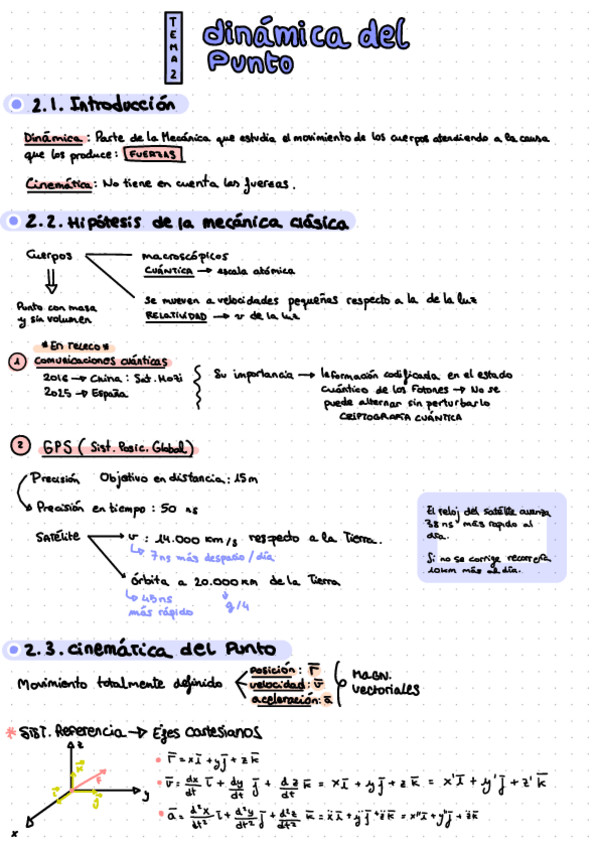 TEMA 2
dinámica del
Punto
2.1. Introducción
Dinámica: Parte de la Mecánica que estudia el movimiento de los cuerpos atendiendo a la causa
que los produce: FUERZAS
Cinemática: No tiene en cuenta las fuerzas.
2.2. Hipótesis de la mecánica clásica
Cuerpos
macroscópicos
CUÁNTICA → escala atómica
Punto con masa
y sin volumen
se mueven a velocidades pequeñas respecto a la de la luz
RELATIVIDAD → v de la luz
*En teleco*
1 Comunicaciones cuánticas
2016 → China: Sat. Mozi
2025 → España
Su importancia → Información codificada en el estado
cuántico de los Fotones → No se
puede alternar sin perturbarlo
CRIPTOGRAFÍA CUÁNTICA
2 GPS (Sist. Posic. Global)
Precisión Objetivo en distancia: 15m
Precisión en tiempo: 50 ns
Satélite
v: 14.000 km/s respecto a la Tierra.
7ns más despacio/día
órbita a 20.000 km de la Tierra
45ns
más rápido
g/4
El reloj del satélite avanza
38 ns más rápido al
día.
Si no se corrige recorrería
10km más al día.
2.3. Cinemática del Punto
Movimiento totalmente definido
posición: r̅
velocidad: v̅
aceleración: a̅
Magn.
vectoriales
* Sist. Referencia → Ejes cartesianos
z
y
x
r̅ = xi̅ + yj̅ + zk̅
v̅ = dx/dt i̅ + dy/dt j̅ + dz/dt k̅ = ẋi̅ + ẏj̅ + żk̅ = x'i̅ + y'j̅ + z'k̅
a̅ = d²x/dt² i̅ + d²y/dt² j̅ + d²z/dt² k̅ = ẍi̅ + ÿj̅ + z̈k̅ = x''i̅ + y''j̅ + z̈k̅